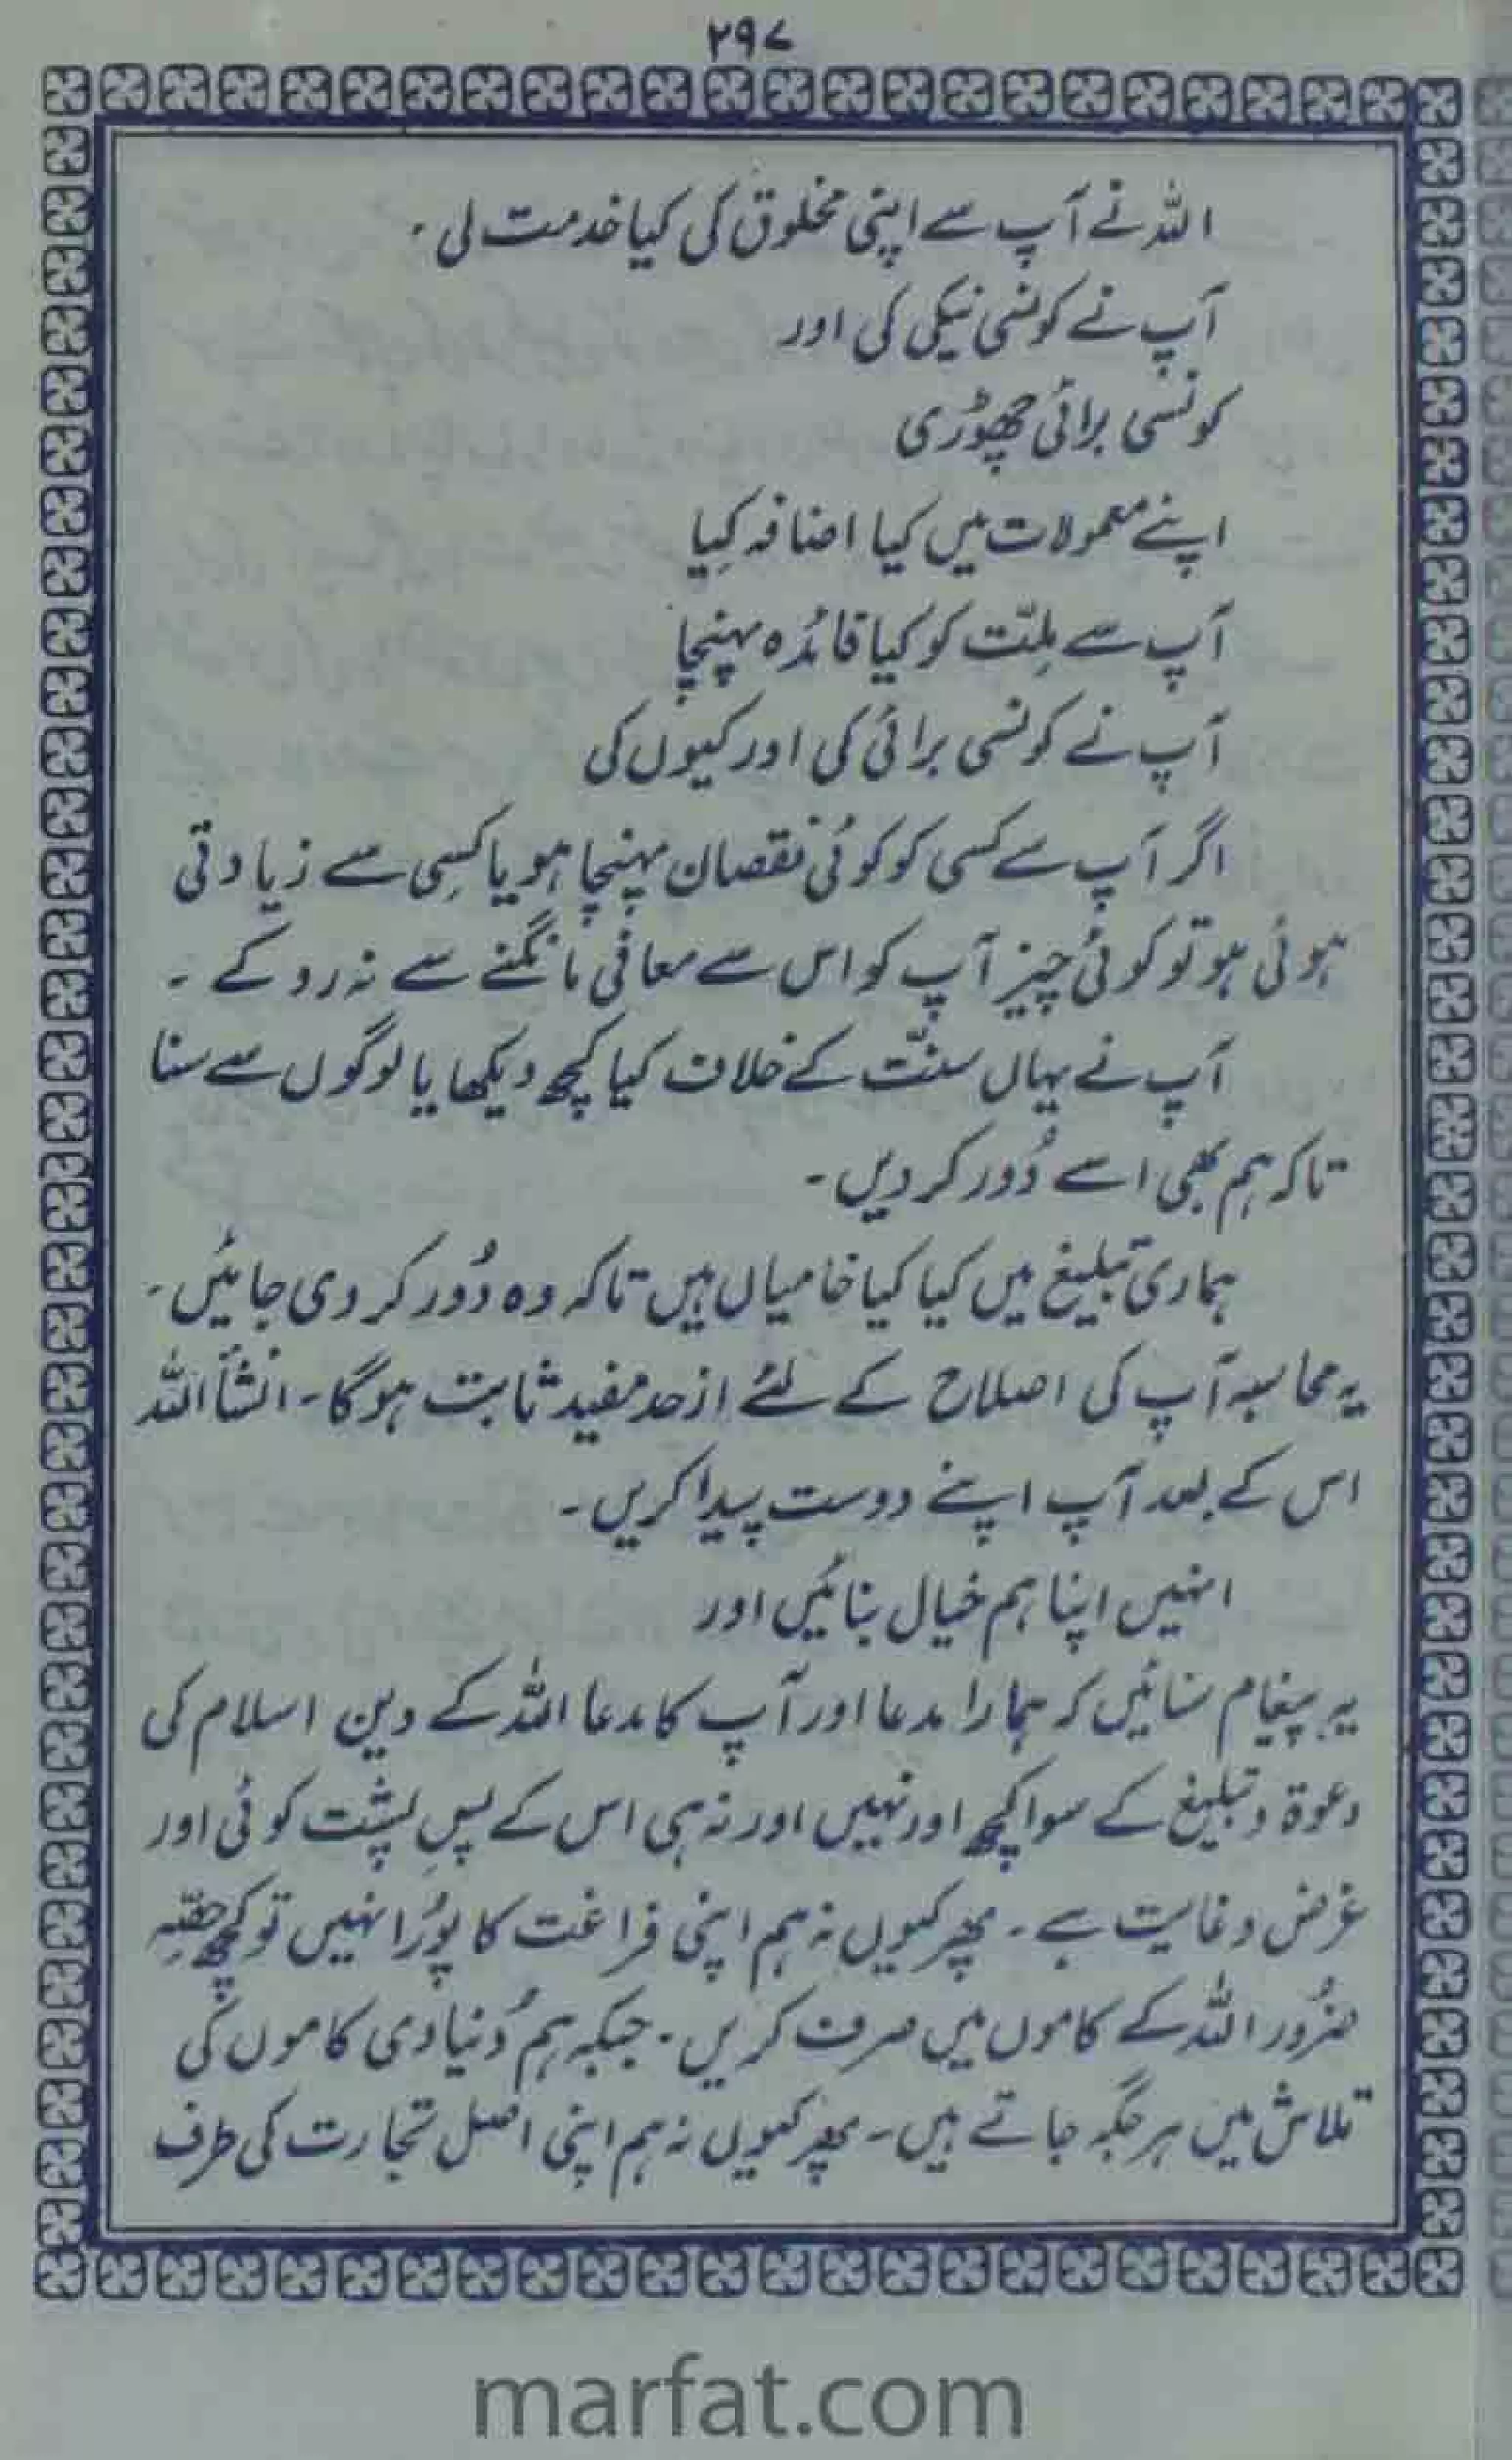 ۲۹۷
اللہ نے آپ سے اپنی مخلوق کی کیا خدمت لی ۔
آپ نے کونسی نیکی کی اور
کونسی برائی چھوڑی
اپنے معمولات میں کیا اضافہ کِیا
آپ سے مِلّت کو کیا فائدہ پہنچا
آپ نے کونسی برائی کی اور کیوں کی
اگر آپ سے کسی کو کوئی نقصان پہنچا ہو یا کسِی سے زیادتی
ہوئی ہو تو کوئی چیز آپ کو اس سے معافی مانگنے سے نہ روکے ۔
آپ نے یہاں سنّت کے خلاف کیا کچھ دیکھا یا لوگوں سے سنا
تاکہ ہم بھی اسے دُور کر دیں ۔
ہماری تبلیغ میں کیا کیا خامیاں ہیں تاکہ وہ دُور کر دی جائیں ۔
یہ محاسبہ آپ کی اصلاح کے لئے ازحد مفید ثابت ہو گا ۔ انشأاللہ
اس کے بعد آپ اپنے دوست پیدا کریں ۔
انہیں اپنا ہم خیال بنائیں اور
یہ پیغام سنائیں کہ ہمارا مدعا اور آپ کا مدعا اللہ کے دین اسلام کی
دعوۃ و تبلیغ کے سوا کچھ اور نہیں اور نہ ہی اس کے پسِ پشت کوئی اور
غرض و غایت ہے ۔ پھر کیوں نہ ہم اپنی فراغت کا پُورا نہیں تو کچھ حصّہ
ضُرور اللہ کے کاموں میں صرف کریں ۔ جبکہ ہم دُنیاوی کاموں کی
تلاش میں ہر جگہ جاتے ہیں ۔ پھر کیوں نہ ہم اپنی اصل تجارت کی طرف
marfat.com